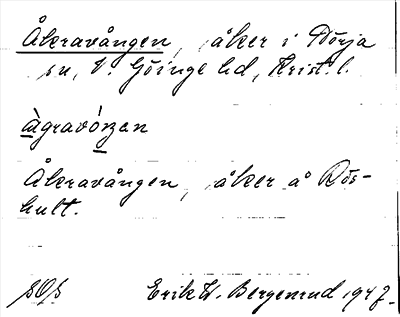 Åkravången, åker i Nörja
sn, V. Göinge hd, Krist. l.
àgravóŋen
Åkravången, åker å Rös-
hult.
Erik W. Bergenrud 1947.